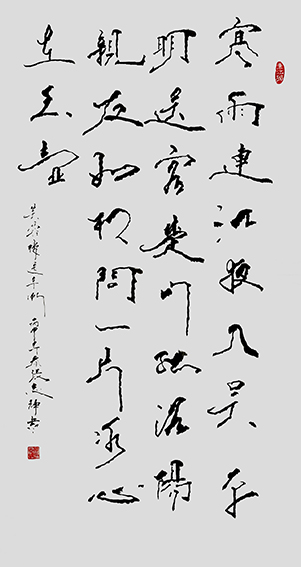 寒雨連江夜入吴平
明送客楚山孤洛陽
親友如相問一片冰心
在玉壺
芙蓉樓送辛漸 丙申年